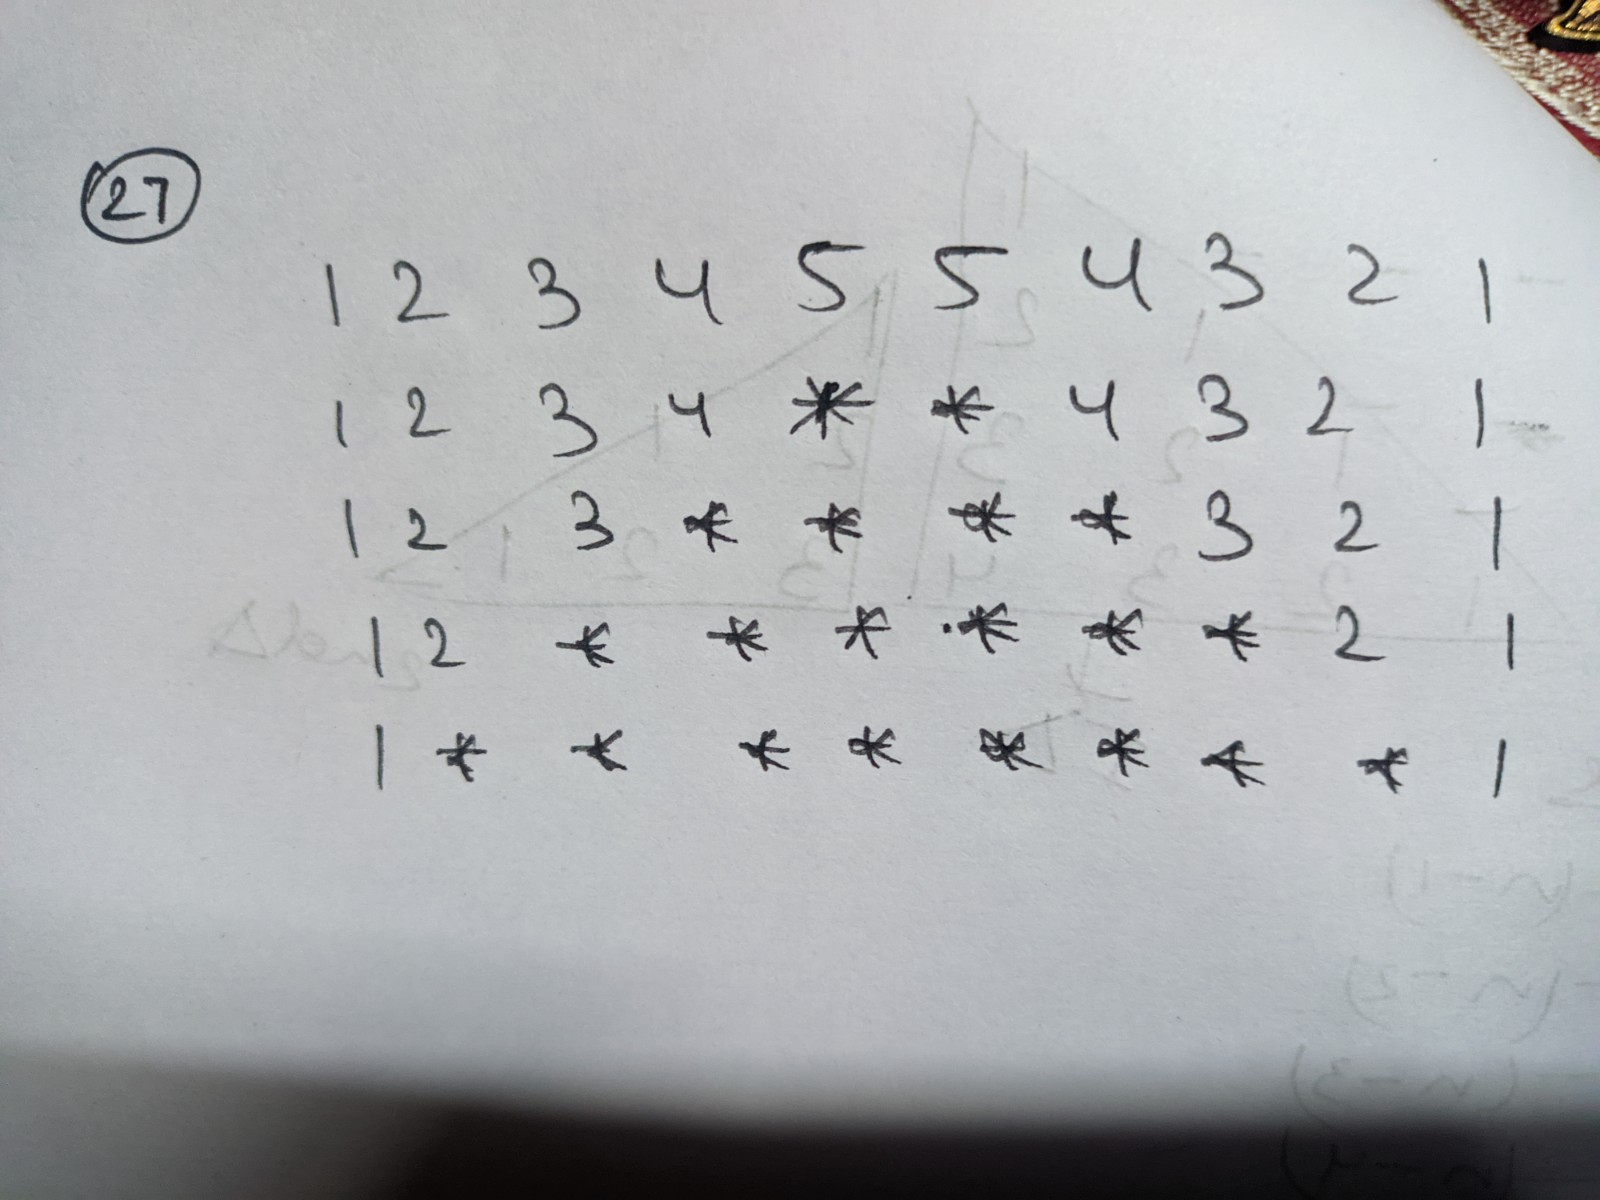 27
1 2 3 4 5 5 4 3 2 1
1 2 3 4 * * 4 3 2 1
1 2 3 * * * * 3 2 1
1 2 * * * * * * 2 1
1 * * * * * * * * 1